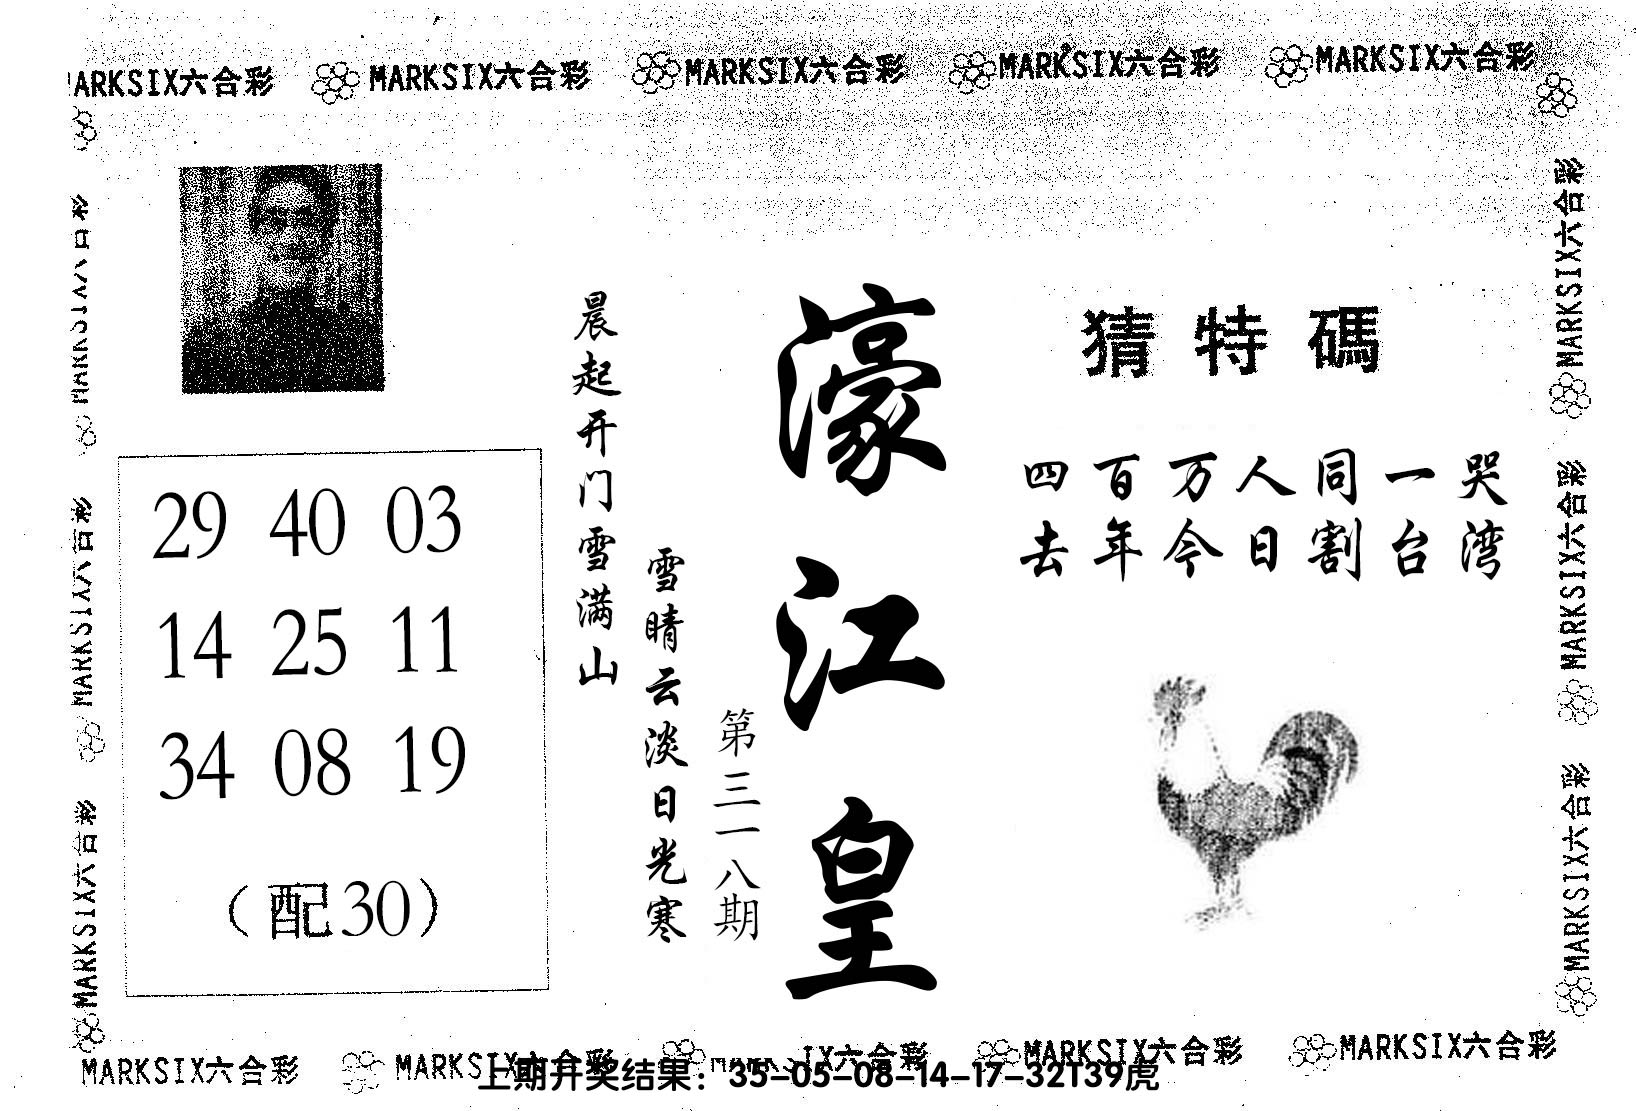 MARKSIX六合彩 MARKSIX六合彩 MARKSIX六合彩 MARKSIX六合彩
MARKSIX六合彩
MARKSIX六合彩
MARKSIX六合彩
MARKSIX六合彩
MARKSIX六合彩
猜特碼
四百万人同一哭
去年今日割台湾
濠江皇
第三一八期
晨起开门雪满山
雪晴云淡日光寒
29 40 03
14 25 11
34 08 19
(配30)
MARKSIX六合彩 MARKSIX六合彩 MARKSIX六合彩 MARKSIX六合彩
上期开奖结果：35-05-08-14-17-32T39虎